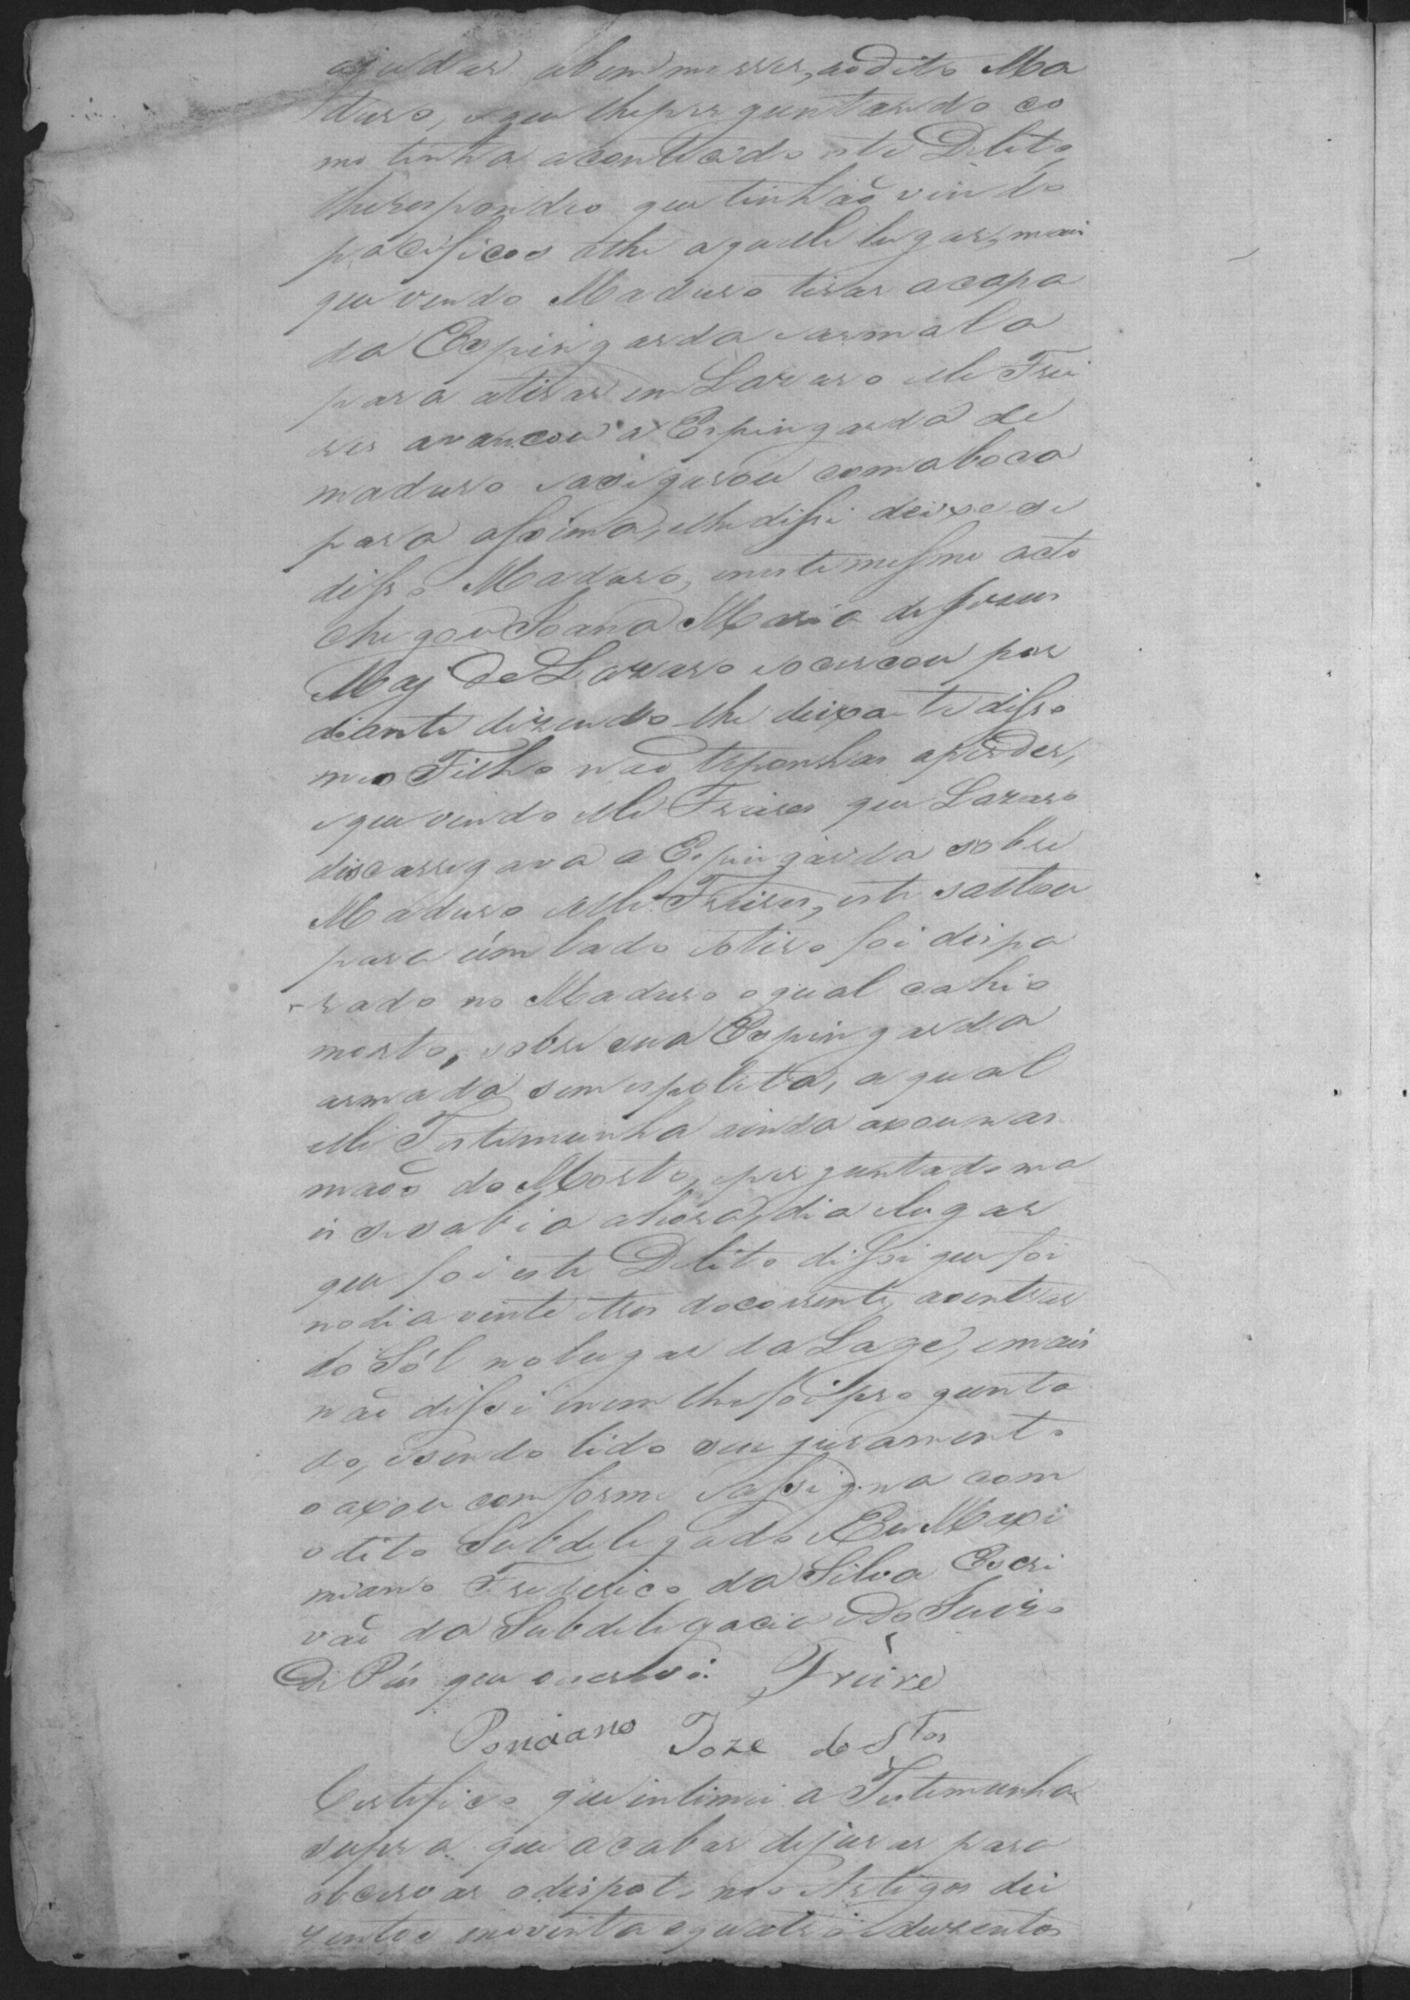 ajudar abem morrer, aodito Ma
duro, eque lheperguntando co
mo tinha acontecido este Delito
lherespondeo que tinhão vindo
pacificos athe aquele lugar, mais
que vendo Maduro tirar acapa
da Espingarda earmala
para atirar em Lazaro elle Frei
res avancou a Espingarda de
maduro easigurou comaboca
para assima, elhe disse deixe se
disso Maduro, eneste mesmo acto
chegou Joana Maria de Jezus
Maj de Lazaro eocercou por
diante dizendo-lhe deixa te disso
meo Filho não teponhas aperder,
eque vendo elle Freires que Lazaro
discarregava a Espingarda sobre
Maduro eelle Freires, este saltou
para úm lado eotiro foi dispa
rado no Maduro oqual cahio
morto, sobre sua Espingarda
armada sem espoleta, aqual
elle Testemunha ainda axou nas
maõs do Morto, eperguntado ma
is sesabia ahora, dia elugar
que foi este Delito disse que foi
nodia vinte etres docorrente, aoentrar
do Sól nolugar da Lage, emais
não disse enem lhefoi pregunta
do, esendo lido seu juramento
oaxou comforme easigna com
odito Subdelegado Eu Maxi
miano Frederico da Silva Escri
vaõ da Subdelegacia edo Juizo
de Pás que oescrevi. Freire
Ponciano Joze do Stos
Certifico que intimei a Testemunha
supra que acabar dejurar para
obcervar odisposto nos Artigos du
zentos enoventa equatro eduzentos